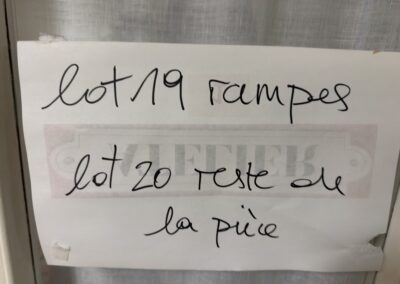 lot 19 rampes
lot 20 reste de
la pièce